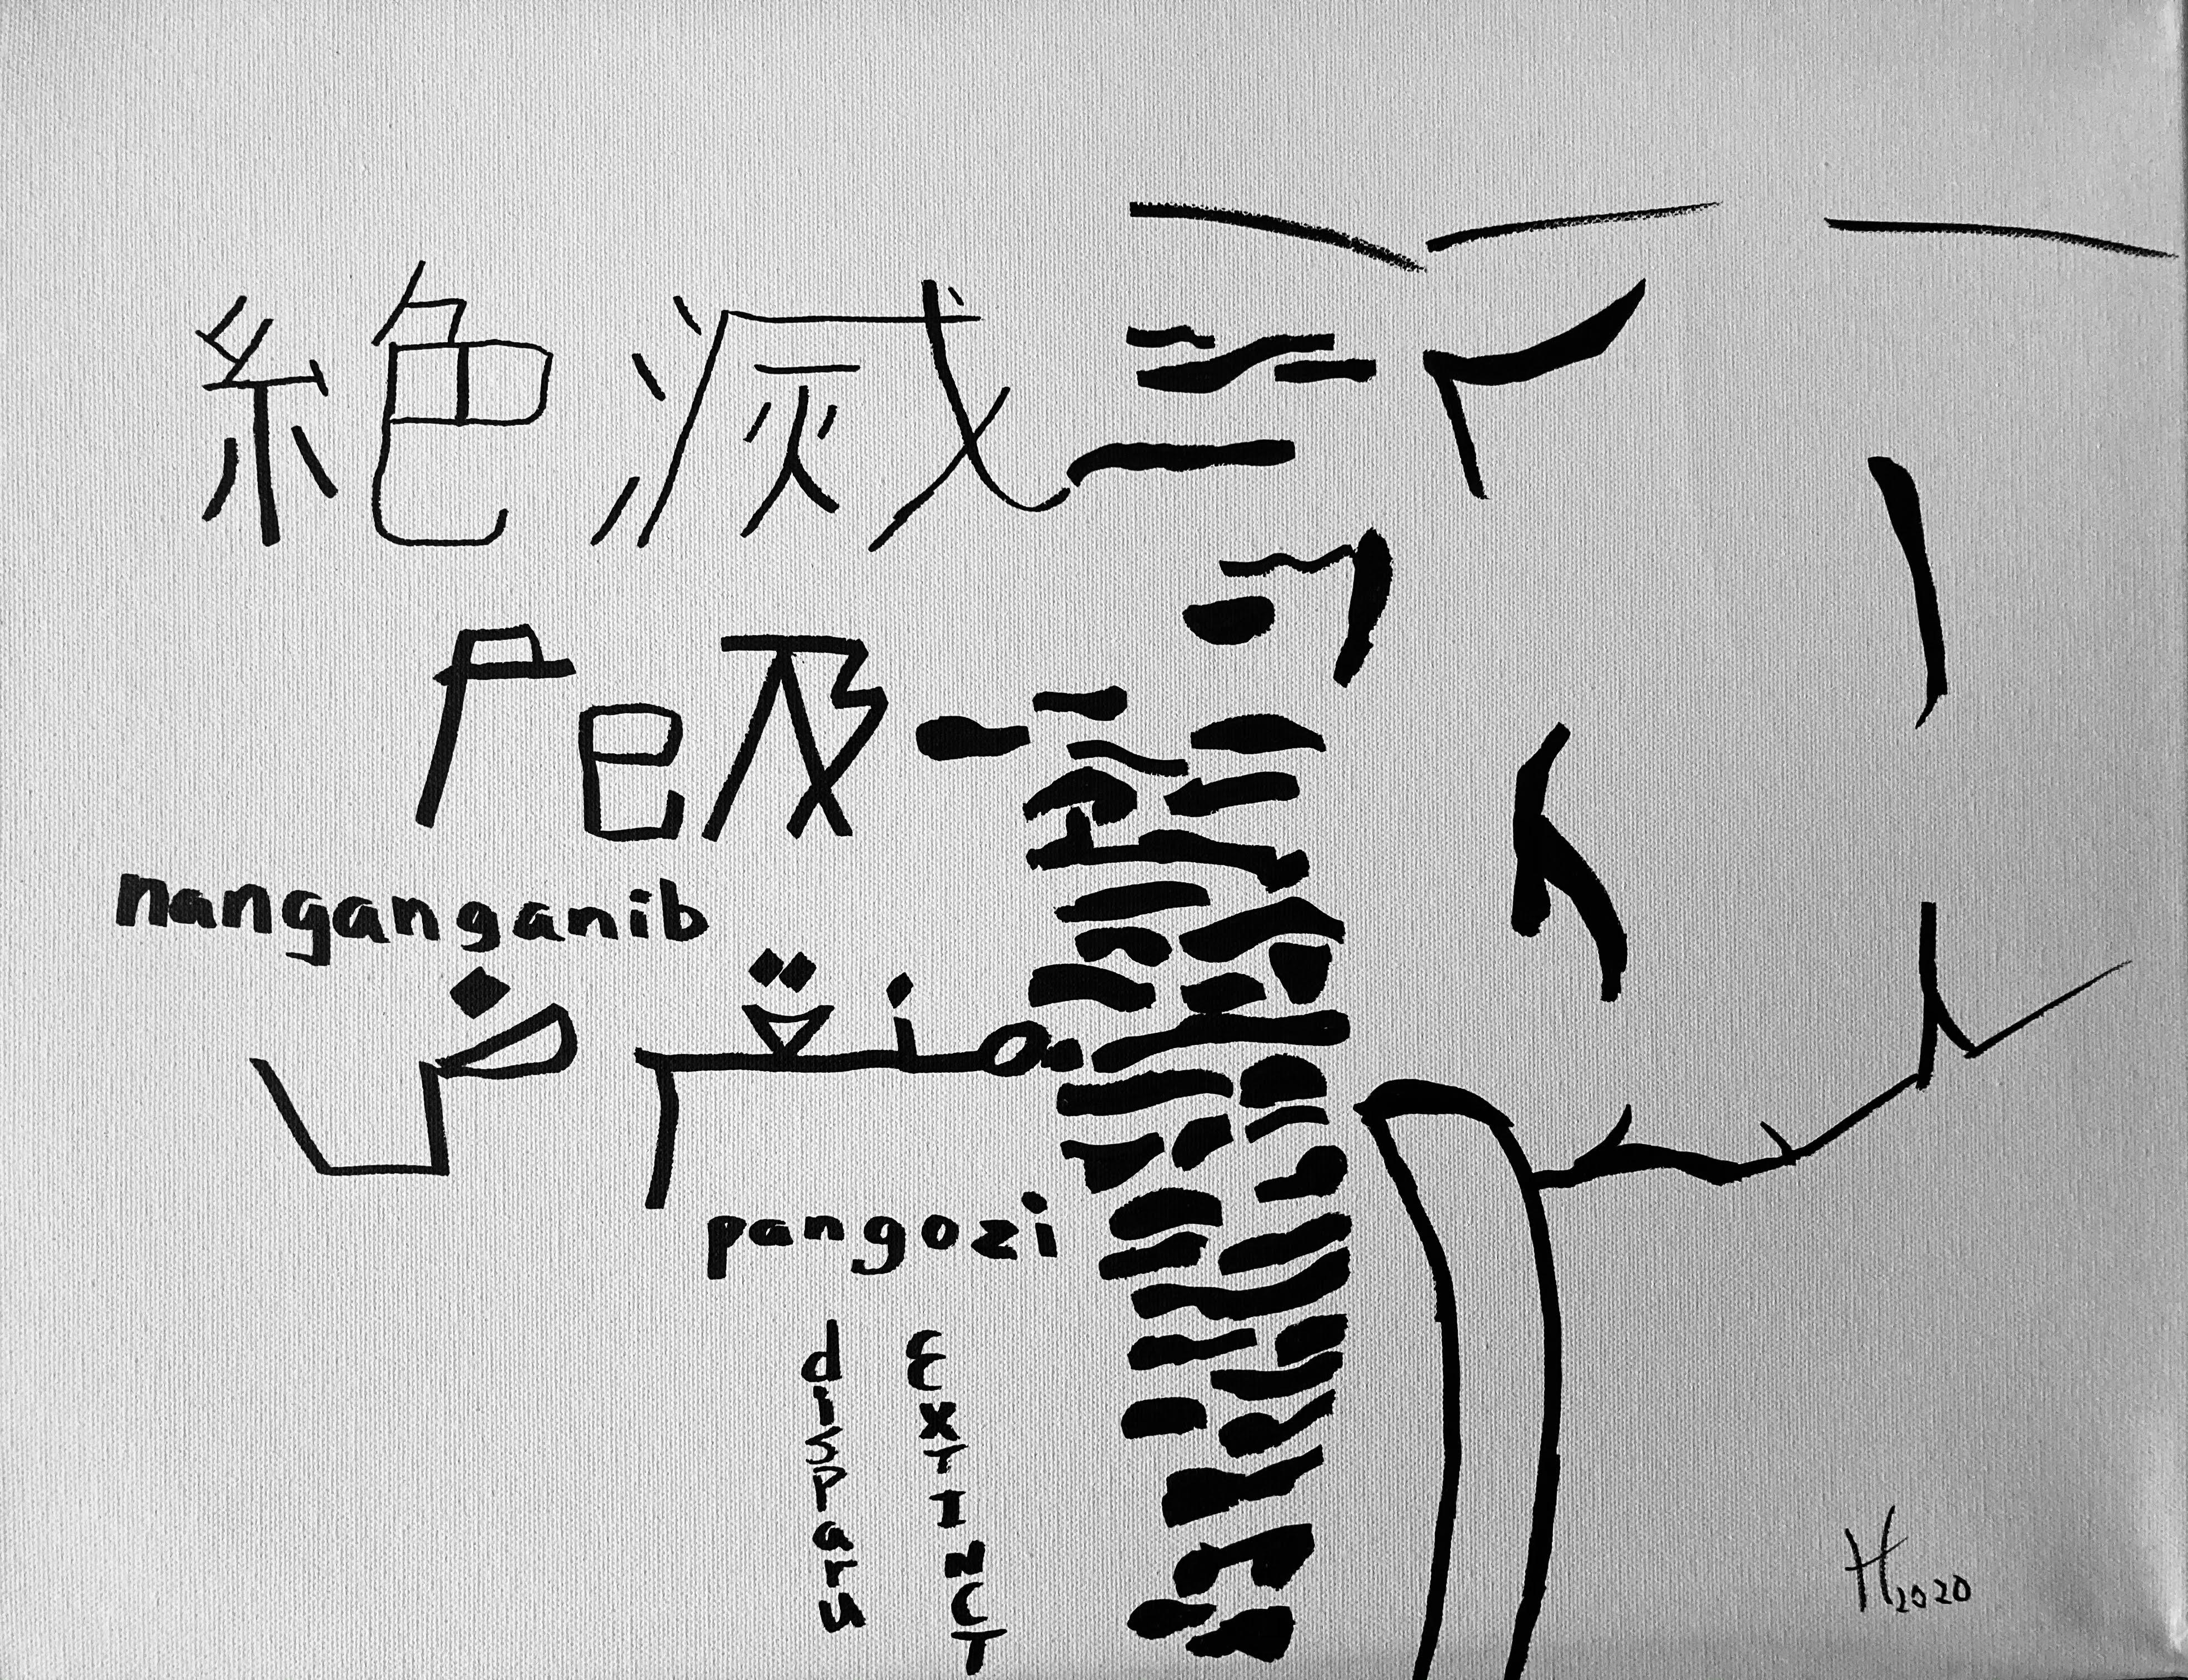 絶滅
危及
nanganganib
منقرض
pangozi
disparu
EXTINCT
H 2020